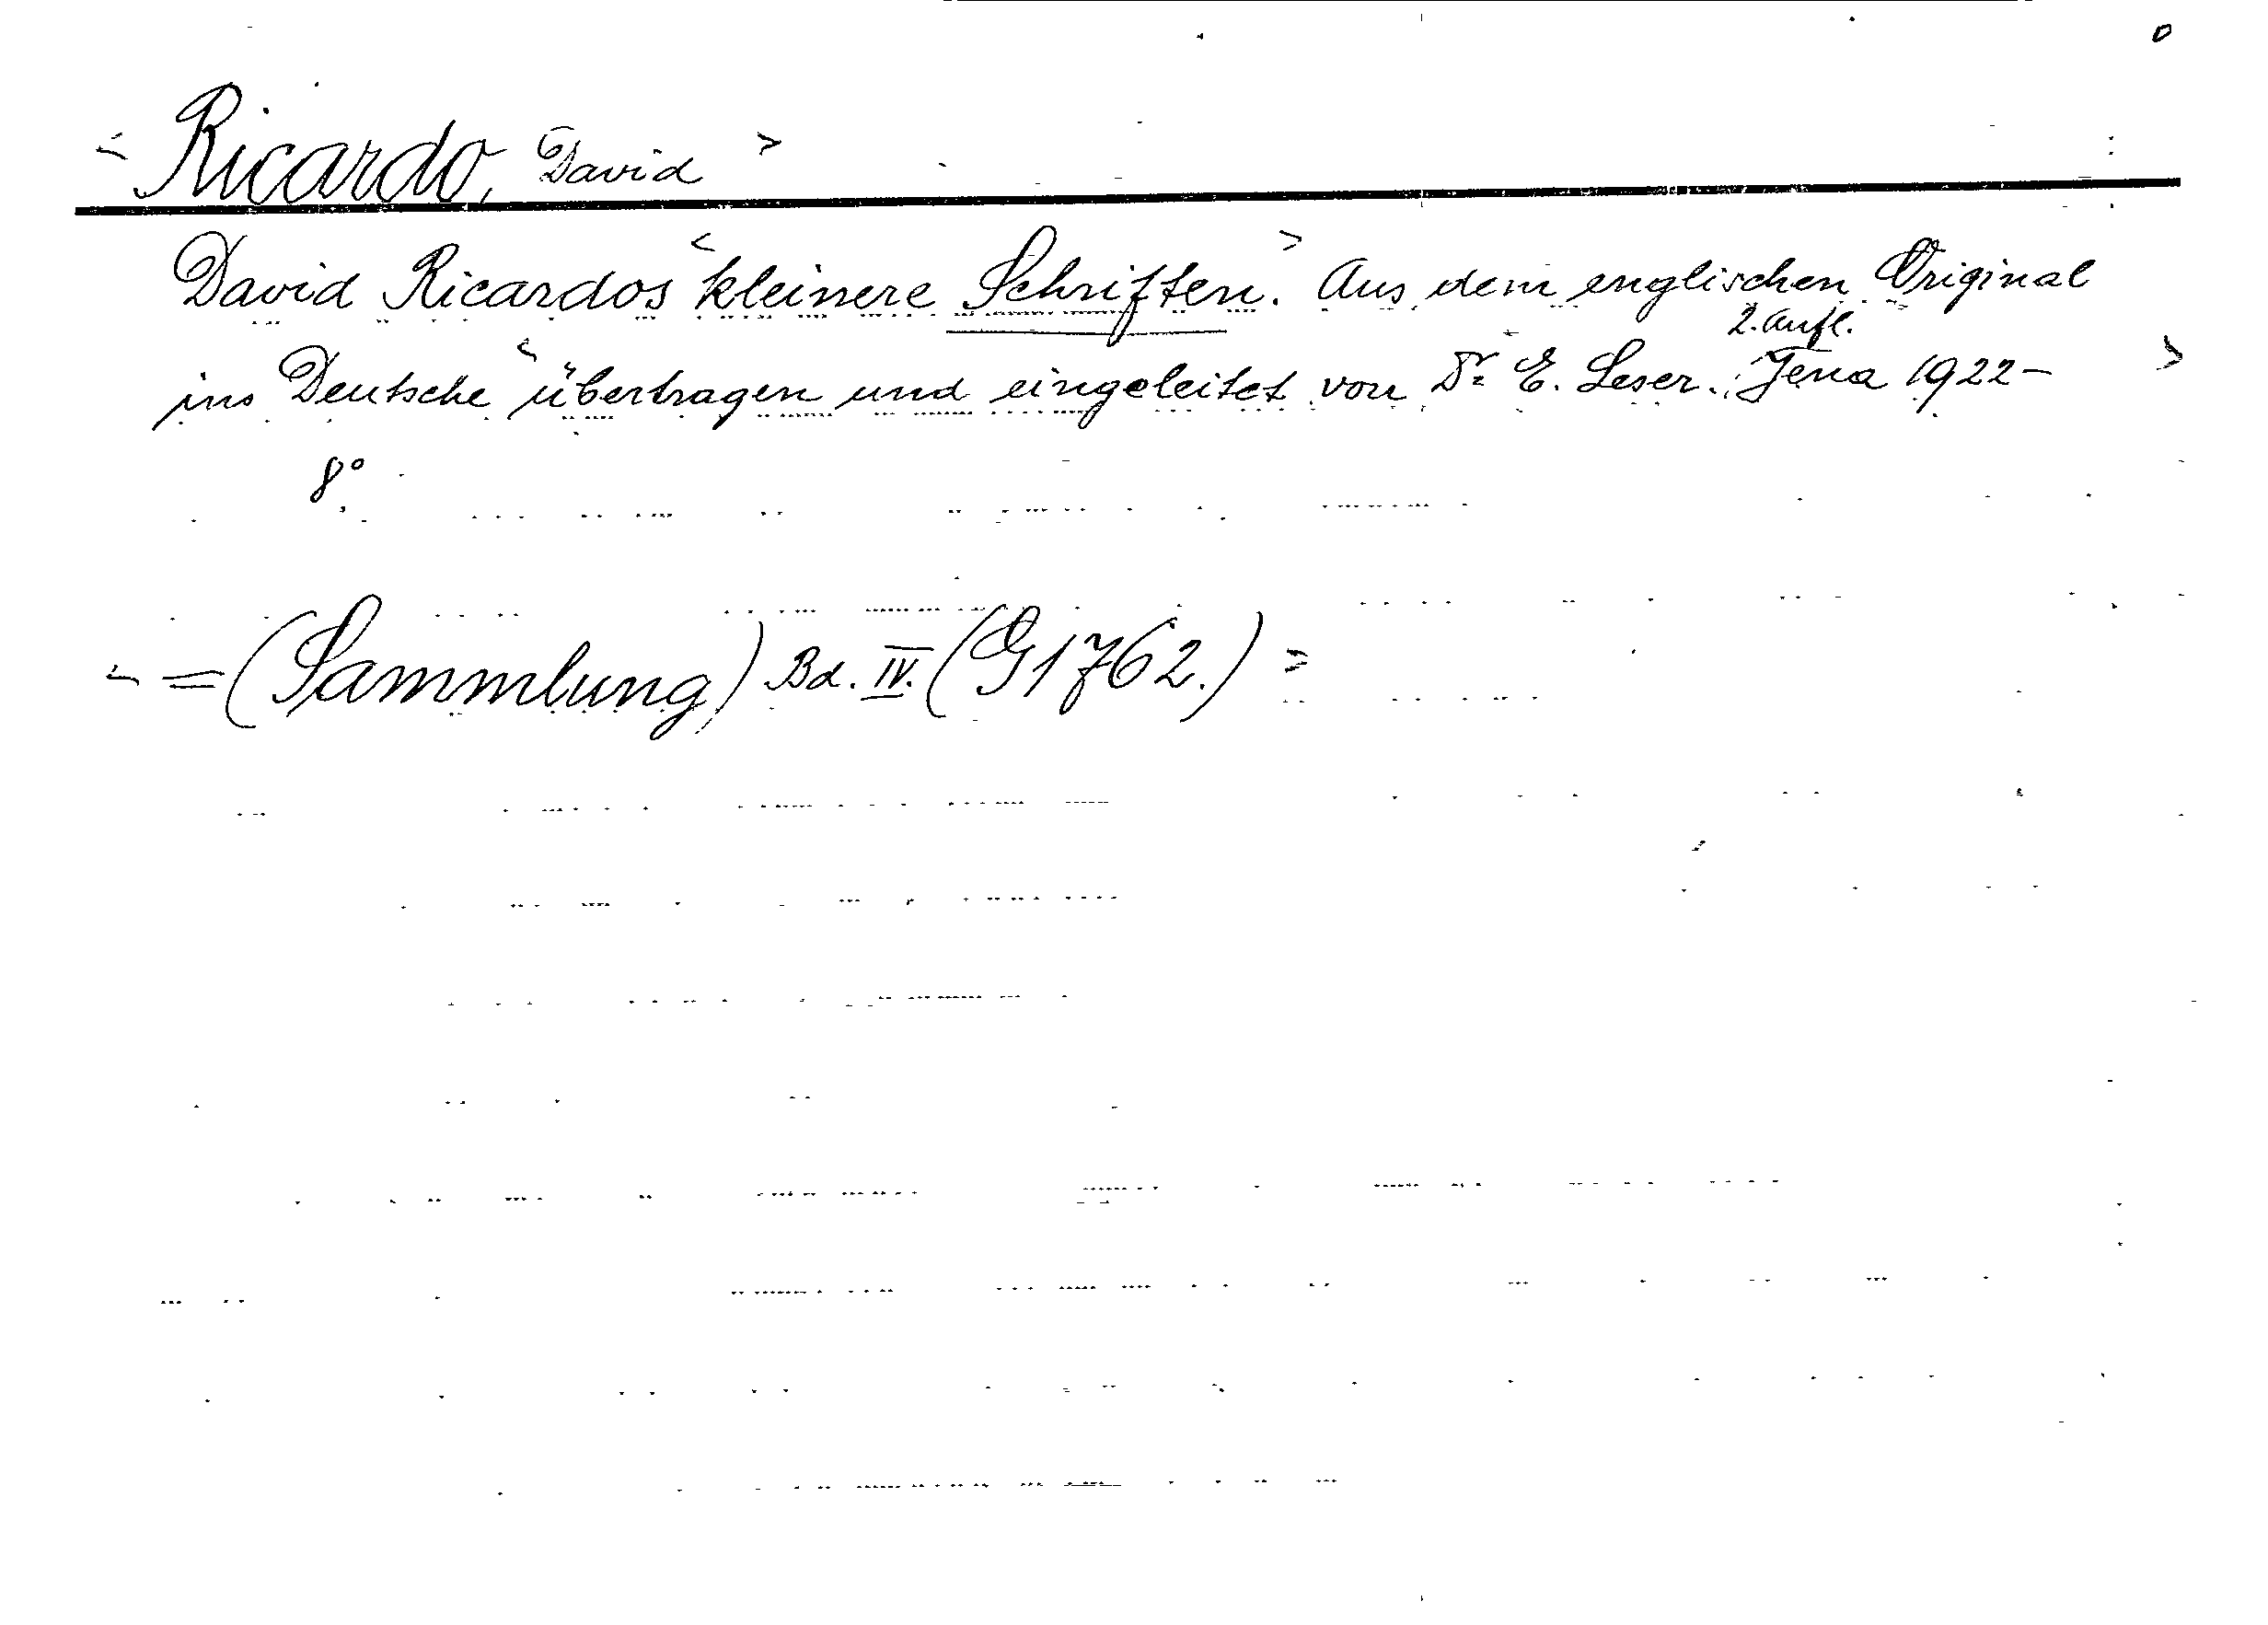 < Ricardo, David >
David Ricardos < kleinere Schriften. > Aus dem englischen Original
ins Deutsche < übertragen und eingeleitet von Dr. E. Leser. 2. Aufl. Jena 1922- >
8°
< = (Sammlung) Bd. IV. (G1762.) >